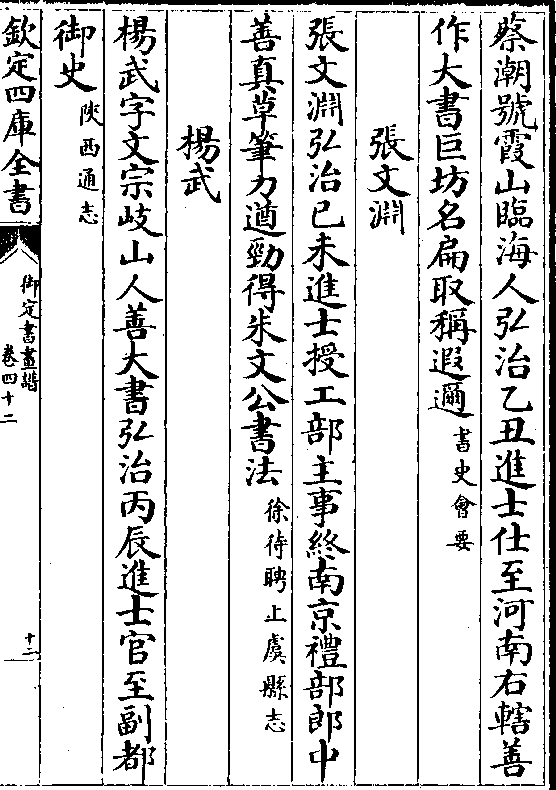 蔡潮號霞山臨海人弘治乙丑進士仕至河南右轄善
作大書巨坊名扁取稱遐邇書史會要
張文淵
張文淵弘治己未進士授工部主事終南京禮部郎中
善真草筆力遒勁得朱文公書法徐待聘上虞縣志
楊武
楊武字文宗岐山人善大書弘治丙辰進士官至副都
御史陜西通志
欽定四庫全書
御定書畫譜
卷四十二
十二